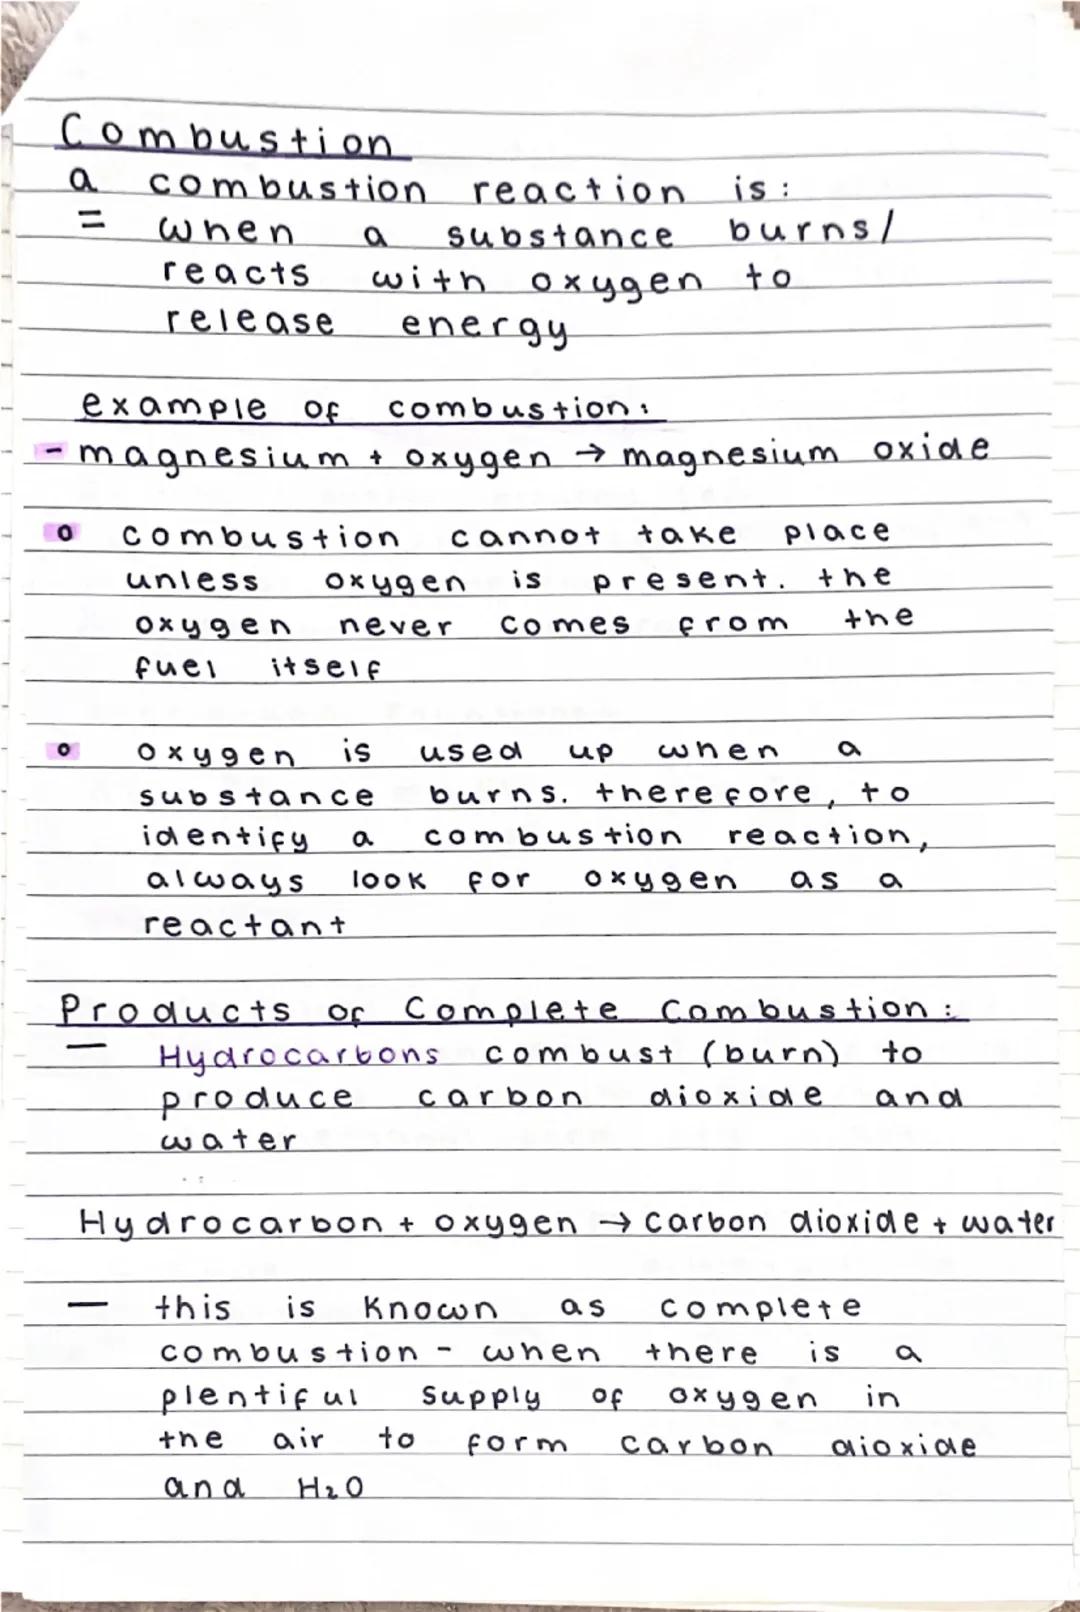 Combustion
a combustion reaction is:
= when a substance burns/
reacts with oxygen to
release energy
example of combustion:
- magnesium + oxygen → magnesium oxide
o combustion cannot take place
unless oxygen is present. the
oxygen never comes from the
fuel itself
o oxygen is used up when a
substance burns. therefore, to
identify a combustion reaction,
always look for oxygen as a
reactant
Products of Complete Combustion:
— Hydrocarbons combust (burn) to
produce carbon dioxide and
water
Hydrocarbon + oxygen → carbon dioxide + water
— this is known as complete
combustion - when there is a
plentiful supply of oxygen in
the air to form carbon dioxide
and H₂O